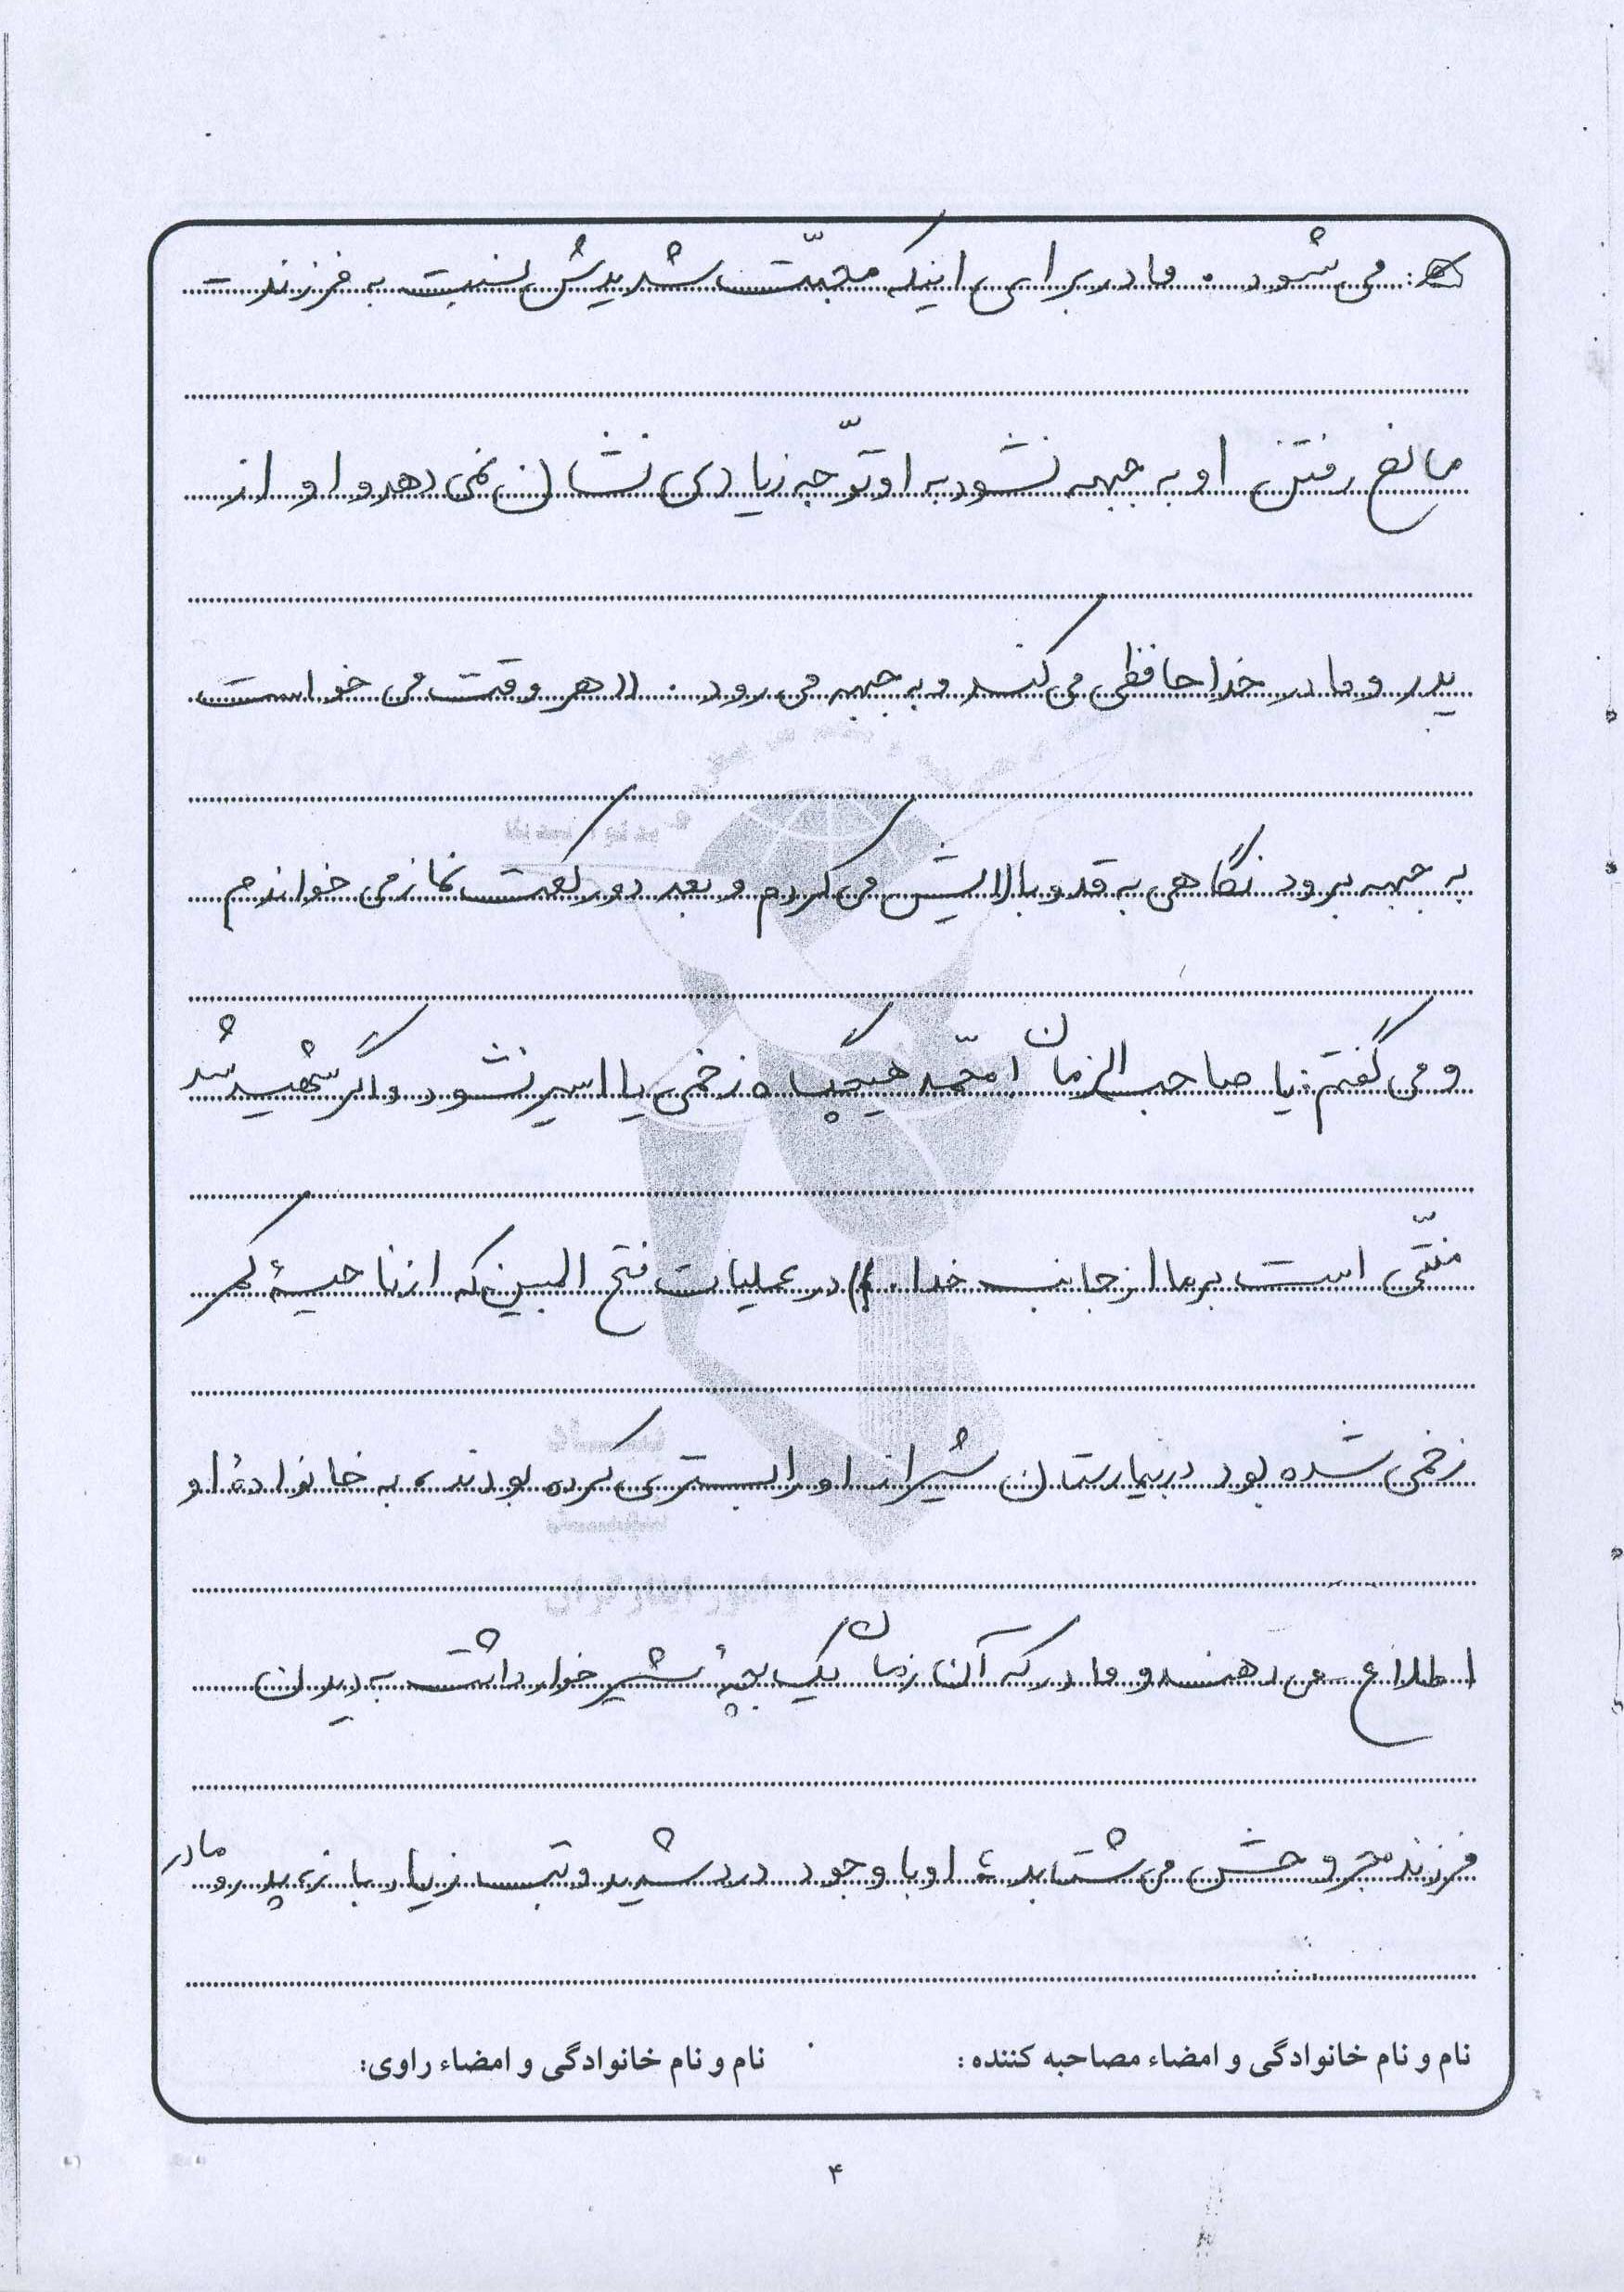 می شود. مادر برای اینکه محبّت شدیدش نسبت به فرزندت
مانع رفتن او به جبهه نشود به او توّجه زیادی نشان نمی دهد و او از
پدر و مادر خداحافظی می کند و به جبهه می رود. ((هر وقت می خواست
به جبهه برود نگاهی به قد و بالایش می کردم و بعد دو رکعت نماز می خواندم
و می گفتم: یا صاحب الزمان! محّمد هیچگاه زخمی یا اسیر نشود و اگر شهید شد
منّتی است بر ما از جانب خدا.)) در عملیات فتح المبین که از ناحیۀ کمر
زخمی شده بود در بیمارستان شیراز او را بستری کرده بودند، به خانوادۀ او
اطلاع می دهند و مادر که آن زمان یک بچۀ شیرخوار داشت به دیدن
فرزند مجروحش می شتابد، او با وجود درد شدید و تب زیاد باز، پدر و مادر
نام و نام خانوادگی و امضاء مصاحبه کننده: نام و نام خانوادگی و امضاء راوی:
۴